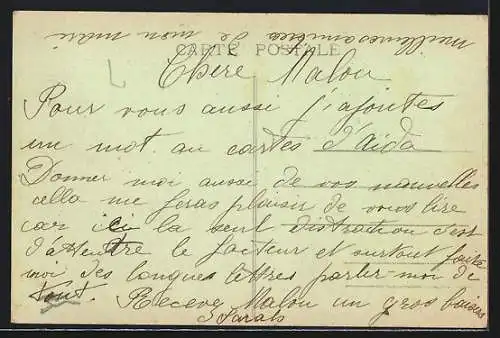 meilleures amitiés de mon mari
CARTE POSTALE
Chere Malou
Pour vous aussi j'ajoutes
un mot au cartes d'Aida
Donner moi aussi de vos nouvelles
cella me feras plaisir de vous lire
car ici la seul distraction s'est
d'attendre le facteur et surtout faite
moi des longues lettres parler-moi de
tout. Recever Malou un gros baisers
Sarah